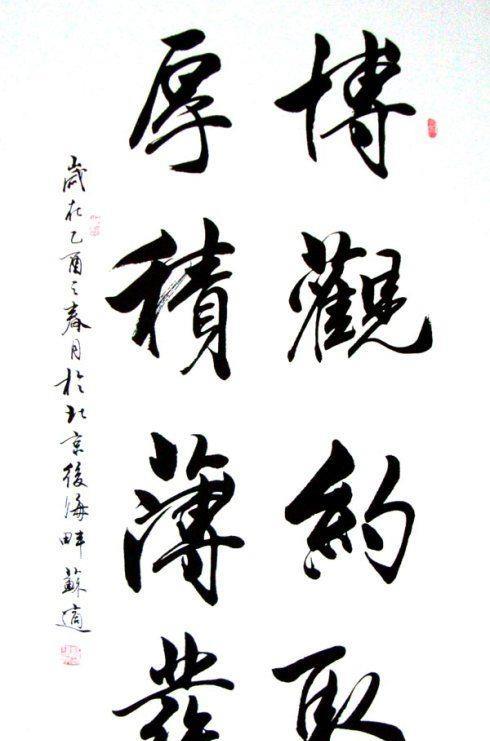 博觀約取
厚積薄發
歲在乙酉之春月於北京後海畔蘇適